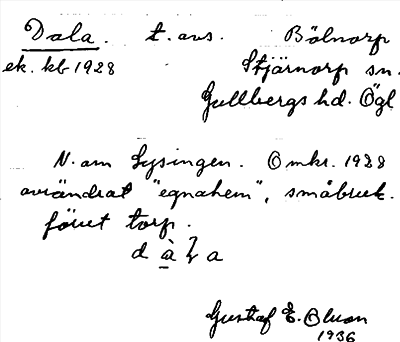 Dala. t. avs. Bölnorp
ek. kb 1928 Stjärnorp sn.
Gullbergs hd. Ögl
N. om Lysingen. Omkr. 1928
avsöndrat "egnahem", småbruk.
förut torp.
d à l a
Gustaf E. Olson
1936